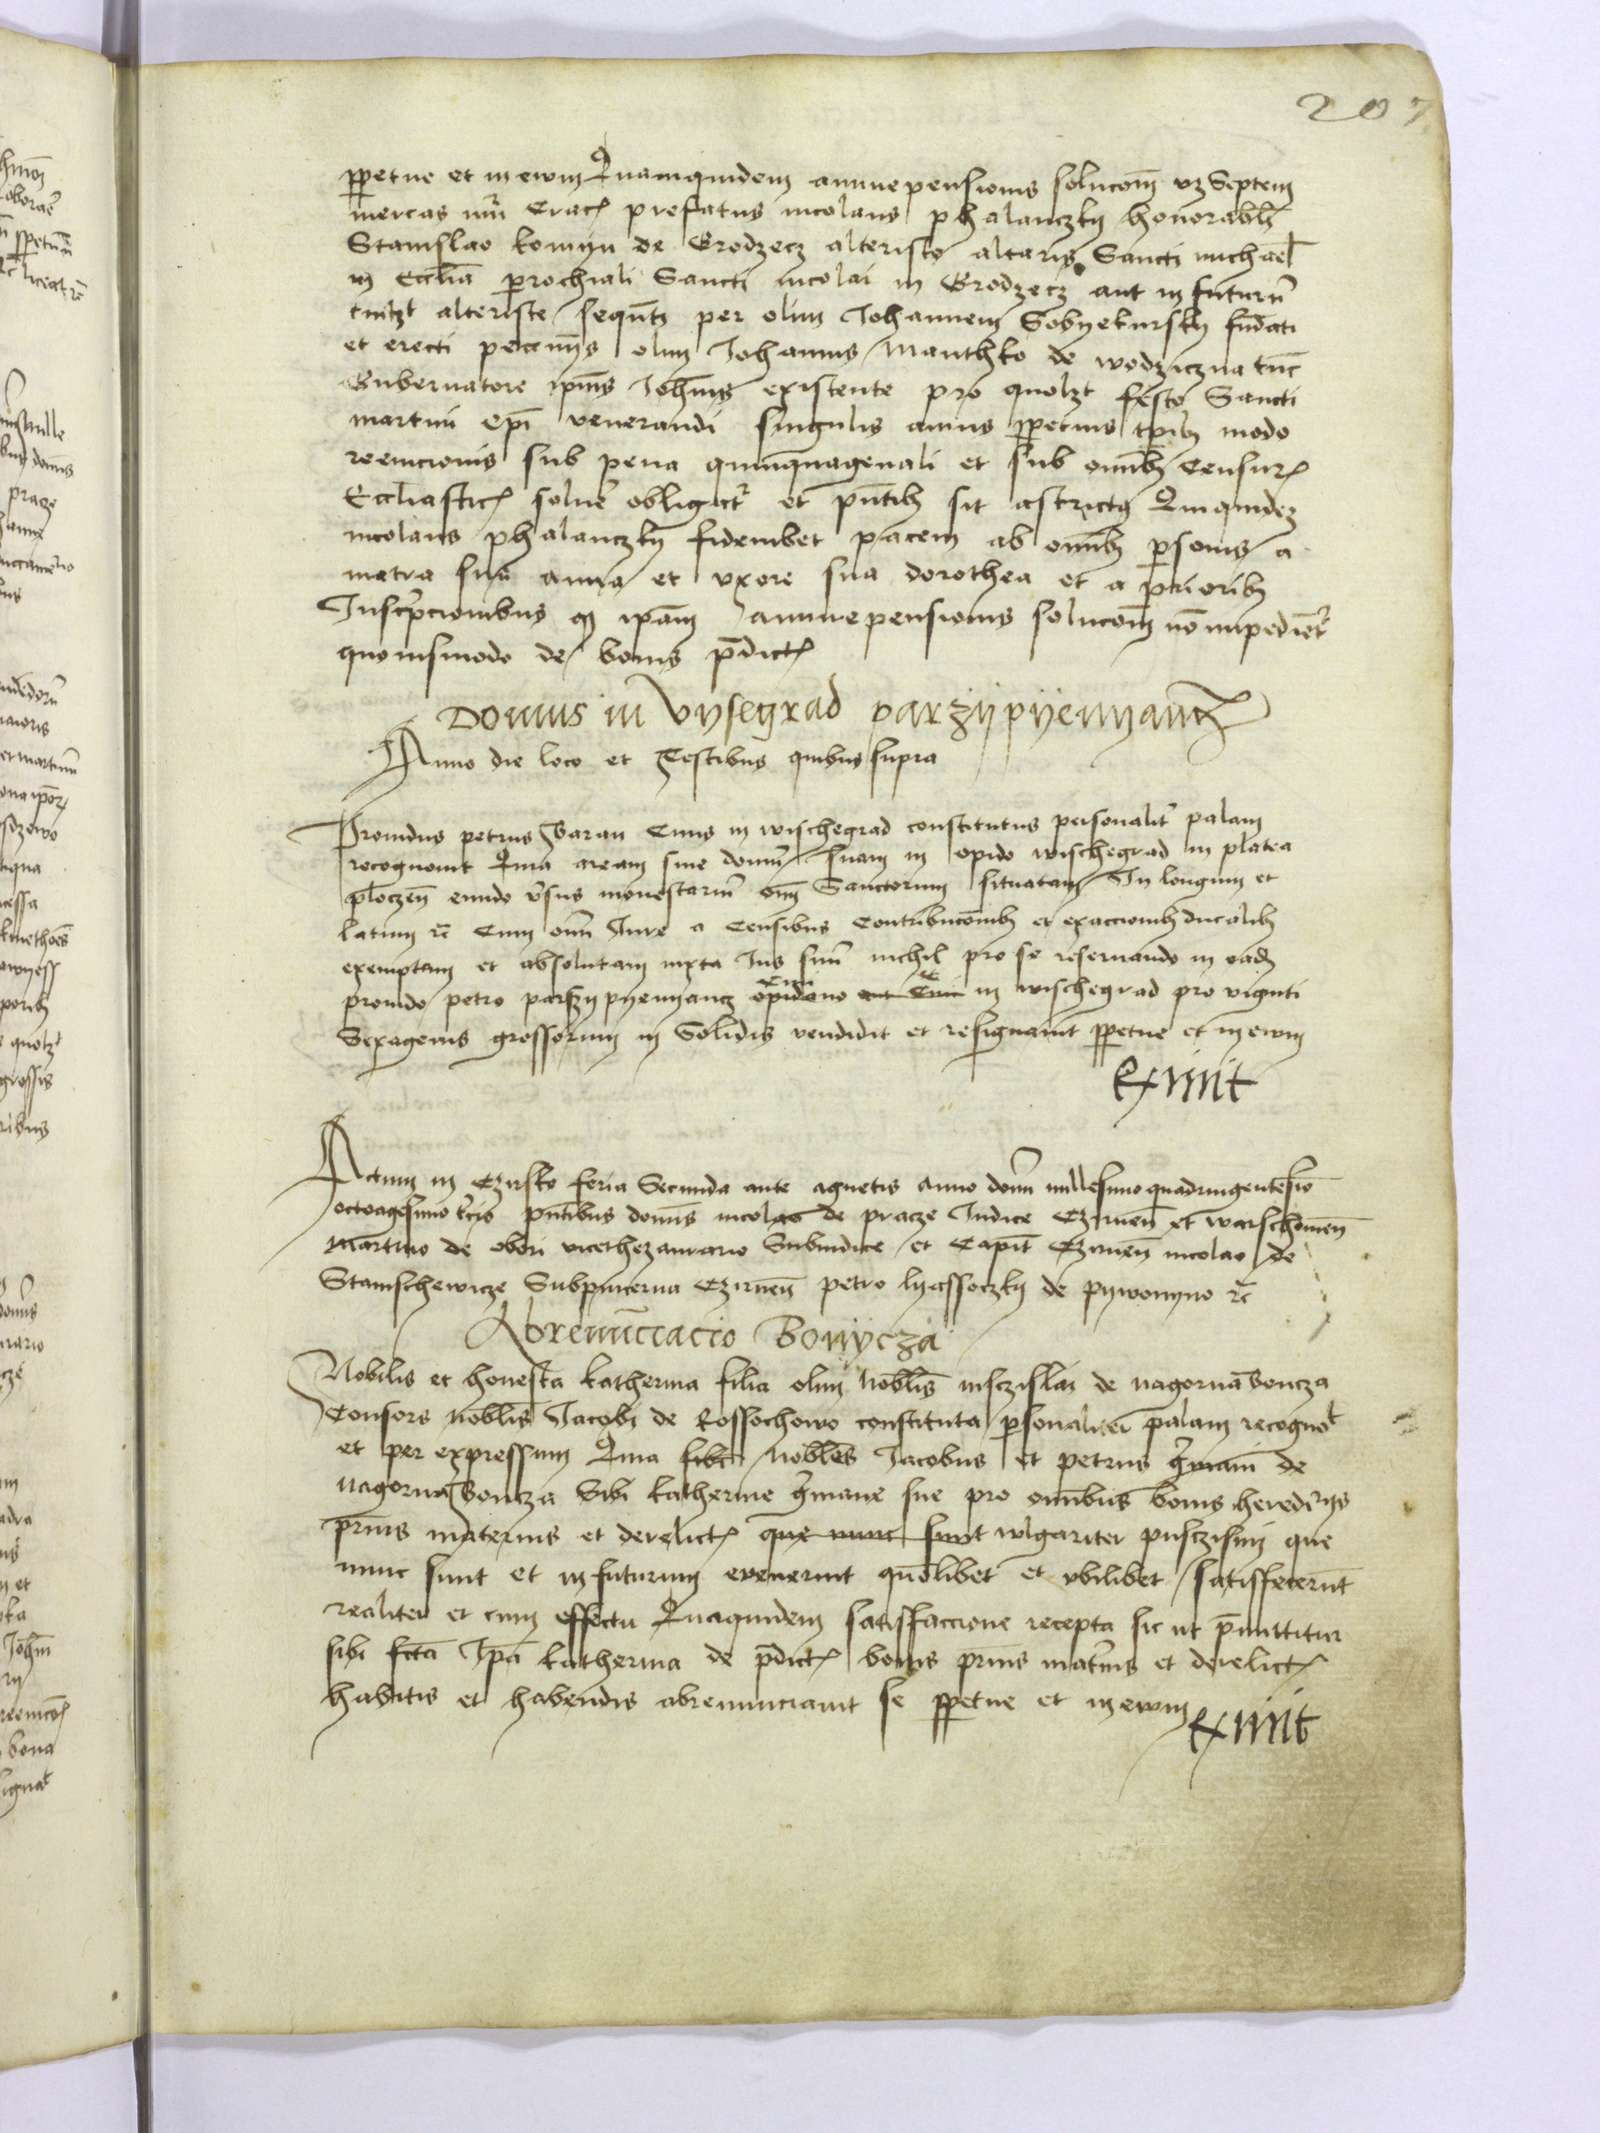 207
ppetue et in ewm Quamquidem annuepensionis solucom̄ vz Septem
mercas nrī Crac prefatus nicolaus phalanczky honorabli
Stanislao komyn de Grodzecz alteriste altaris Sancti michael
in Ecclia prochiali Sancti nicolai in Grodzecz aut in futurū
alteriste sequtz per olim Johannem Sobyekursky fudati
et erecti pecuniis olim Johannis manthko de wodziczna tūc
Gubernatore ipius Johīs existente pro quolzt festo Sancti
martini epī venerandi singulis annis ppetuis tpib modo
reempcionis sub pena quinquagenali et sub omib Censur
Eccliastic soluē obligatr et pntib sit astrictus Quiquidez
nicolaus phalanczky fideiubet pacem ab omib psonis a
matra sua anna et vxore sua dorothea et a prioribz
Inscripcionibus que ipam annuepensionis solucom̄ nō impediētr
quouismodo de bonis pdict
Domus in Vysegrad parzypyenyancz
Anno die loco et Testibus quibus supra
Prouidus petrus Baran Ciuis in wischegrad constitutus personalitr palam
recognouit Quia aream siue domū suam in opido wischegrad in platea
ploczen̄ eundo vsus monestariū om̄ Sanctorum situatam In longum et
latum rc̄ Cum omī Jure a Censibus Contribucōnib et exaccionib ducalib
exemptam et absolutam iuxta Jus suū nichil pro se reseruando in eadz
prouido petro parszypyenyancz opidano aut Ciui in wischegrad pro viginti
Sexagenis grossorum in Solidis vendidit et resignauit ppetue et in ewm
Exiuit
Actum in Czirsko feria Secunda ante agnetis anno domī millesimo quadringentesimo
octoagesimo trcio pntibus domīs nicolao de pracze Iudice Czirnen̄ et warschouien̄
martino de obori vicethezaurario Subiudice et Capit Czirnen̄ nicolao de
Stanischewicze Subpincerna Czirnen̄ petro lyassoczky de pywonyno rc̄
Abrenūciacio Bonycza
Nobilis et honesta katherina filia olim noblis msczislai de nagorna boncza
Consors noblis Jacobi de Rossochowo constituta psonaliter palam recognot
et per expressum Quia sibi nobles Jacobus et petrus grmani de
nagorna Boncza Sibi katherine grmane sue pro omībus bonis hereditrijs
prnis maternis et derelict que nunc sunt wlgariter pusczisnij que
nunc sunt et in futurum euenerint quolibet et vbilibet satisfecerūt
realiter et cum effectu Quaquidem satisfaccione recepta sic ut pmittitur
sibi fcta Ipā katherina de pdict bonis prnis matnis et derelict
habitis et habendis abrenunciauit se ppetue et in ewm
Exiuit